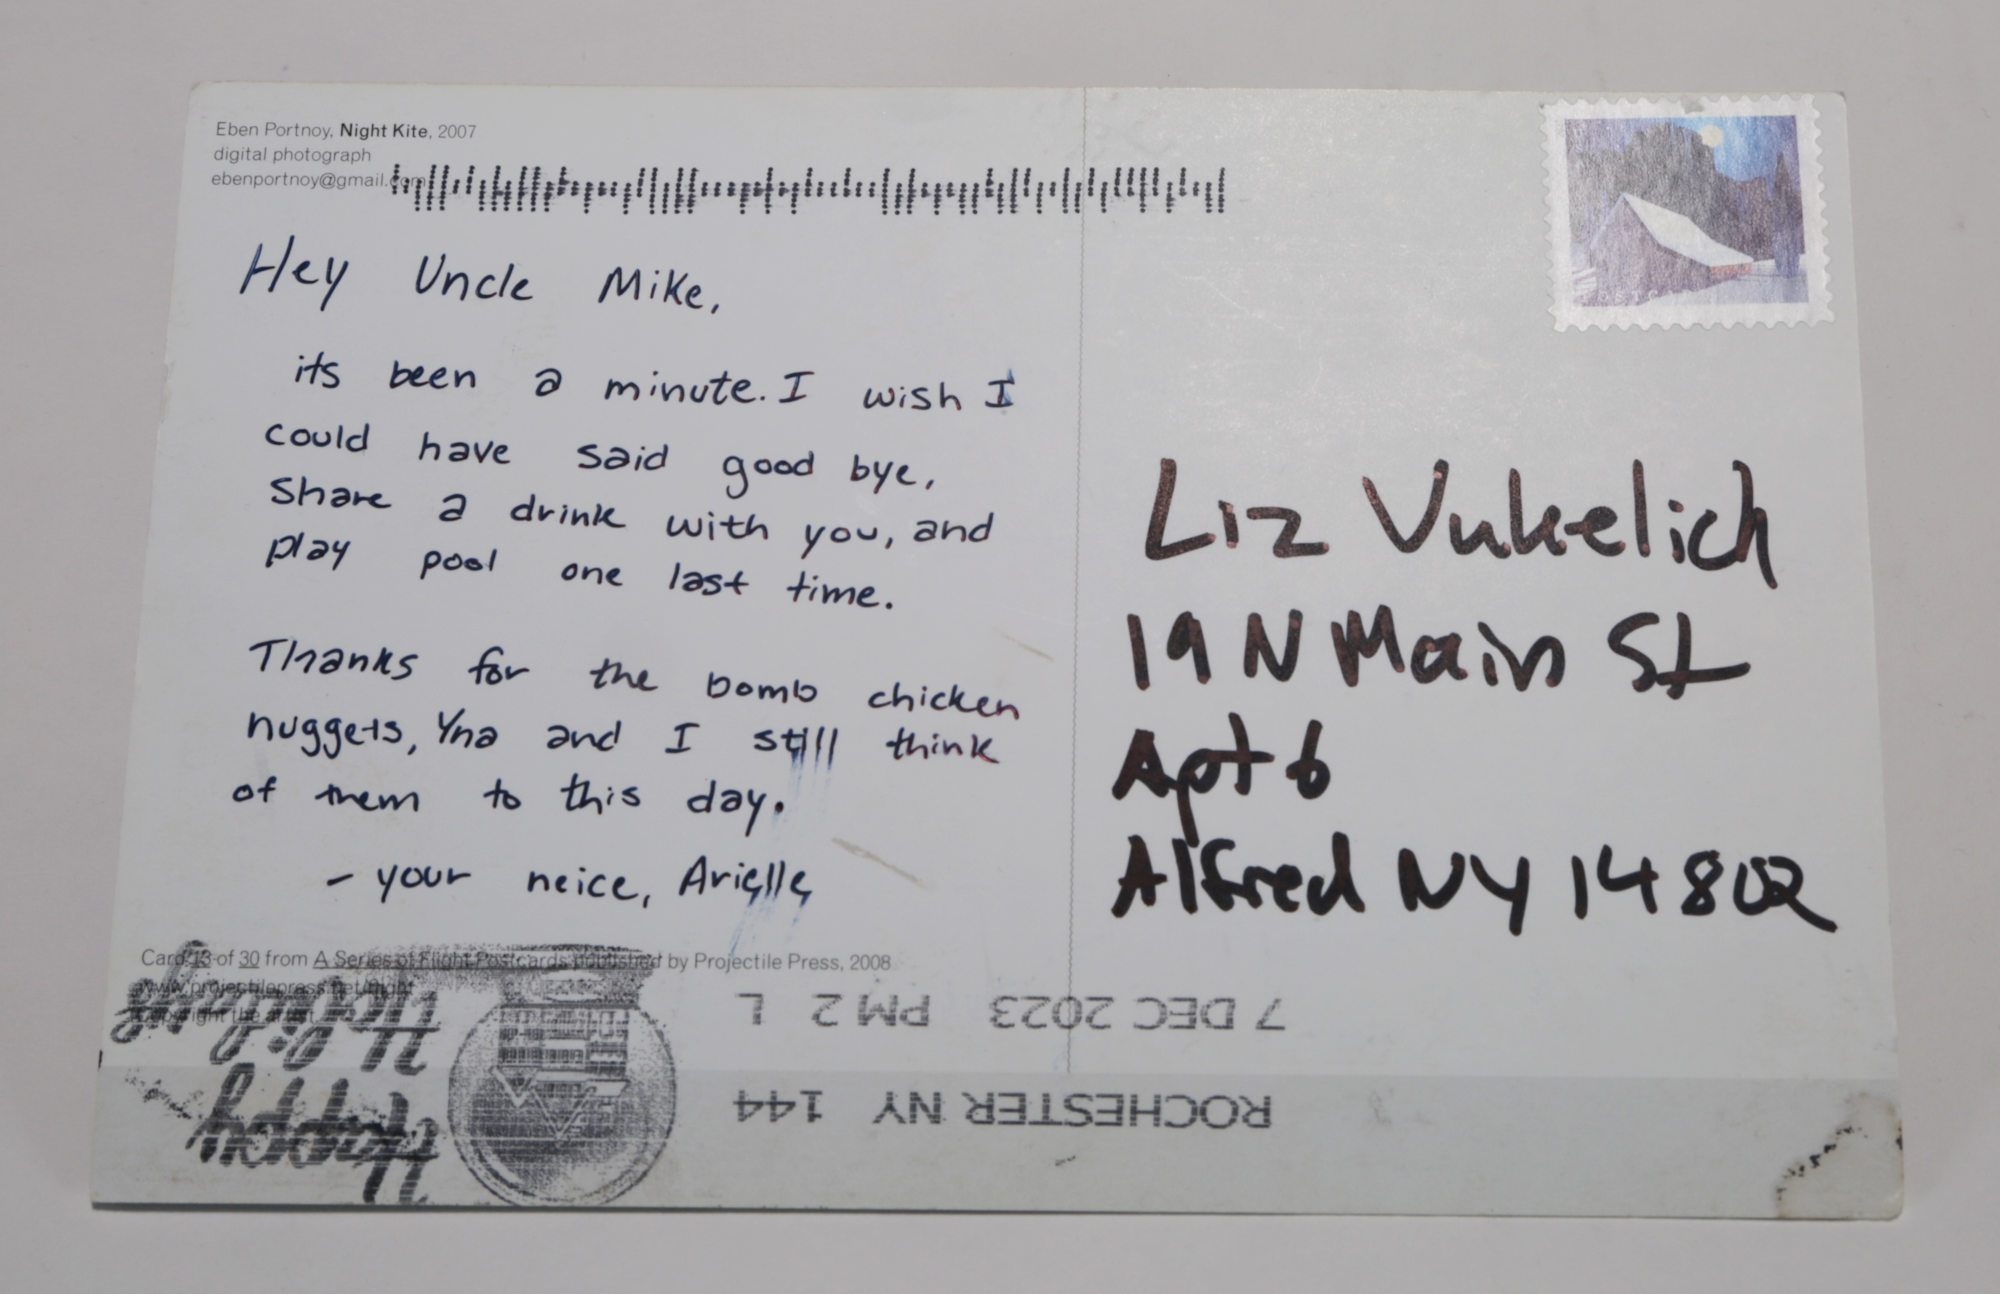 Eben Portnoy, Night Kite, 2007
digital photograph
ebenportnoy@gmail.com
Hey Uncle Mike,
its been a minute. I wish I
could have said good bye,
share a drink with you, and
play pool one last time.
Thanks for the bomb chicken
nuggets, Yna and I still think
of them to this day.
- your neice, Arielle
Liz Vukelich
19 N Main St
Apt 6
Alfred NY 14802
Card 13 of 30 from A Series of Flight Postcards published by Projectile Press, 2008
www.projectilepress.net/flight
copyright the artist
ROCHESTER NY 144
7 DEC 2023 PM 2 L
Happy
Holidays